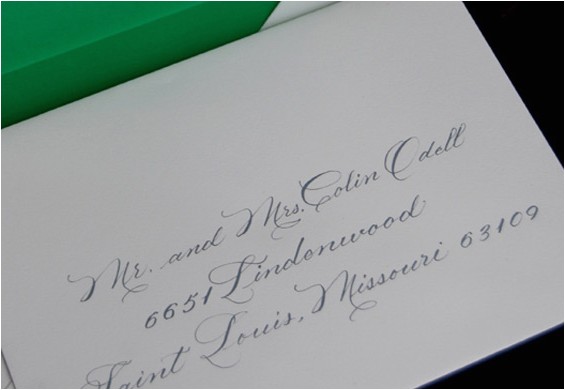 Mr. and Mrs. Colin Odell
6651 Lindenwood
Saint Louis, Missouri 63109